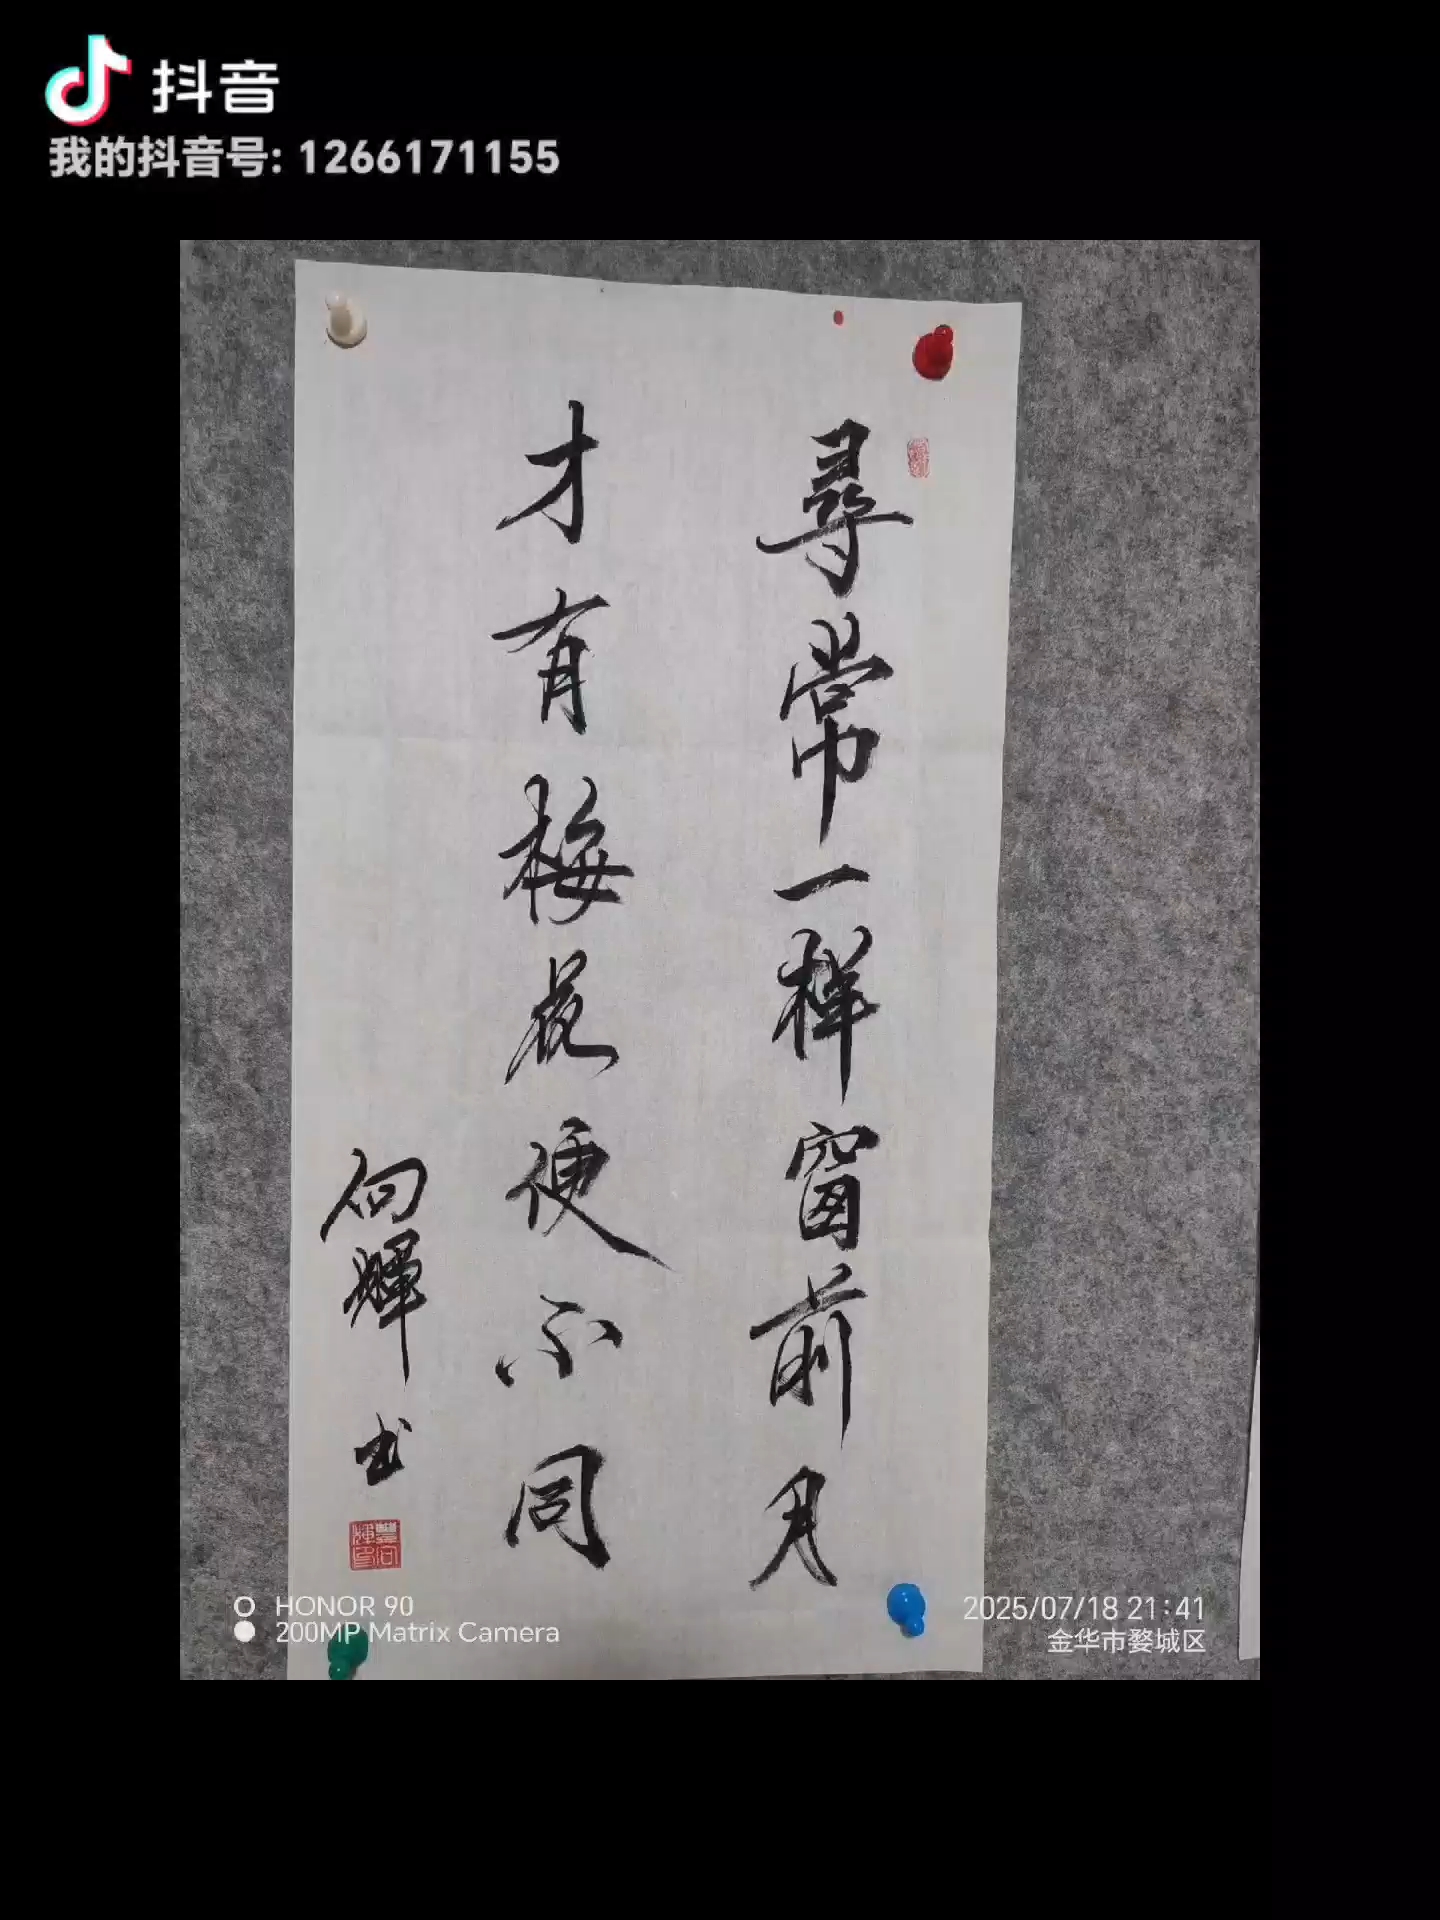 抖音
我的抖音号: 1266171155
尋常一样窗前月
才有梅花便不同
向輝书
HONOR 90
200MP Matrix Camera
2025/07/18 21:41
金华市婺城区